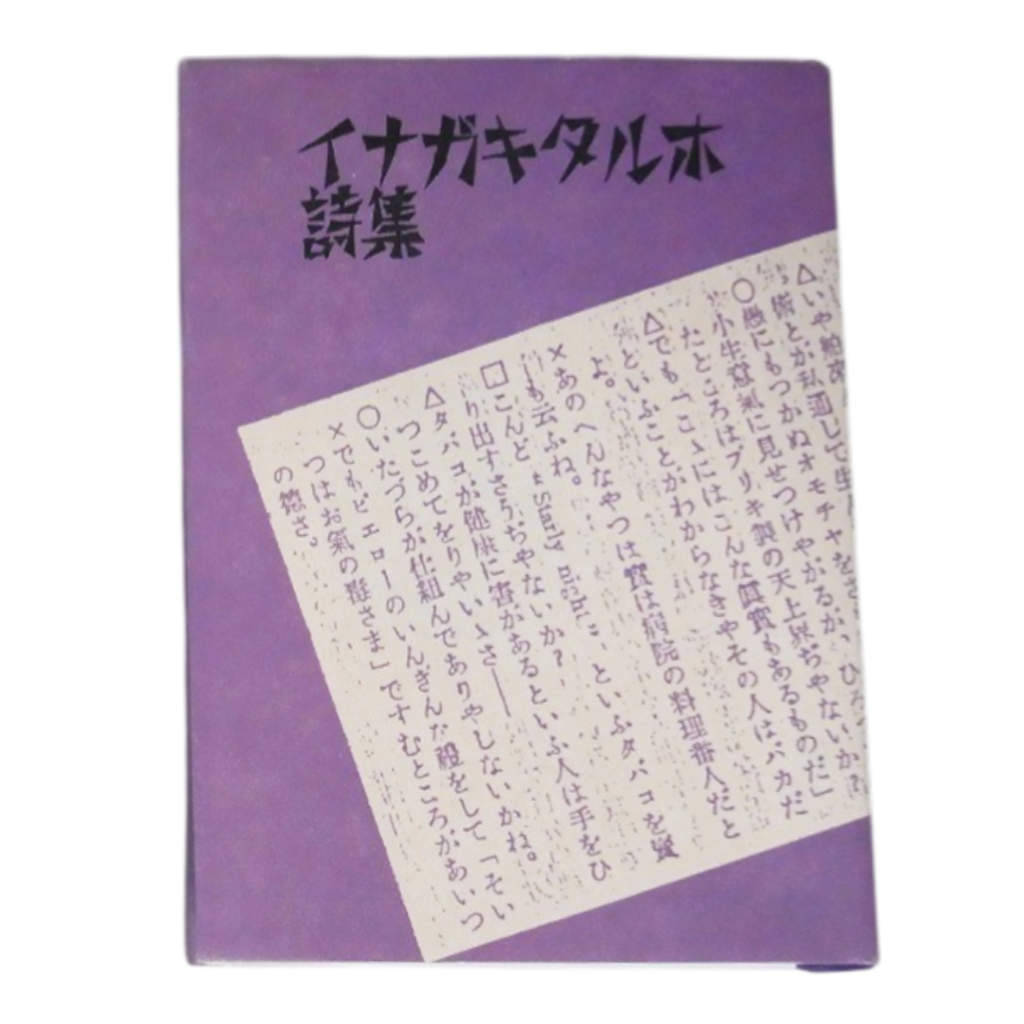 イナガキタルホ
詩集
△いや
術とか私通して生
○愚にもつかぬオモチヤをさ ひろ
小生意氣に見せつけやがるが、
たところはブリキ製の天上界ぢやないか?
△でも「こゝにはこんな眞實もあるものだ」
といふことがわからなきやその人はバカだ
よ。
×あのへんなやつは實は病院の料理番人だと
も云ふね。
□こんど “Starly night” といふタバコを賣
り出すさうぢやないか?
△タバコが健康に害があるといふ人は手をひ
つこめてをりやいゝさ――
○いたづらが仕組んでありやしないかね。
×でもピエローのいんぎんな をして「そい
つはお氣の毒さま」ですむところがあいつ
の さ。